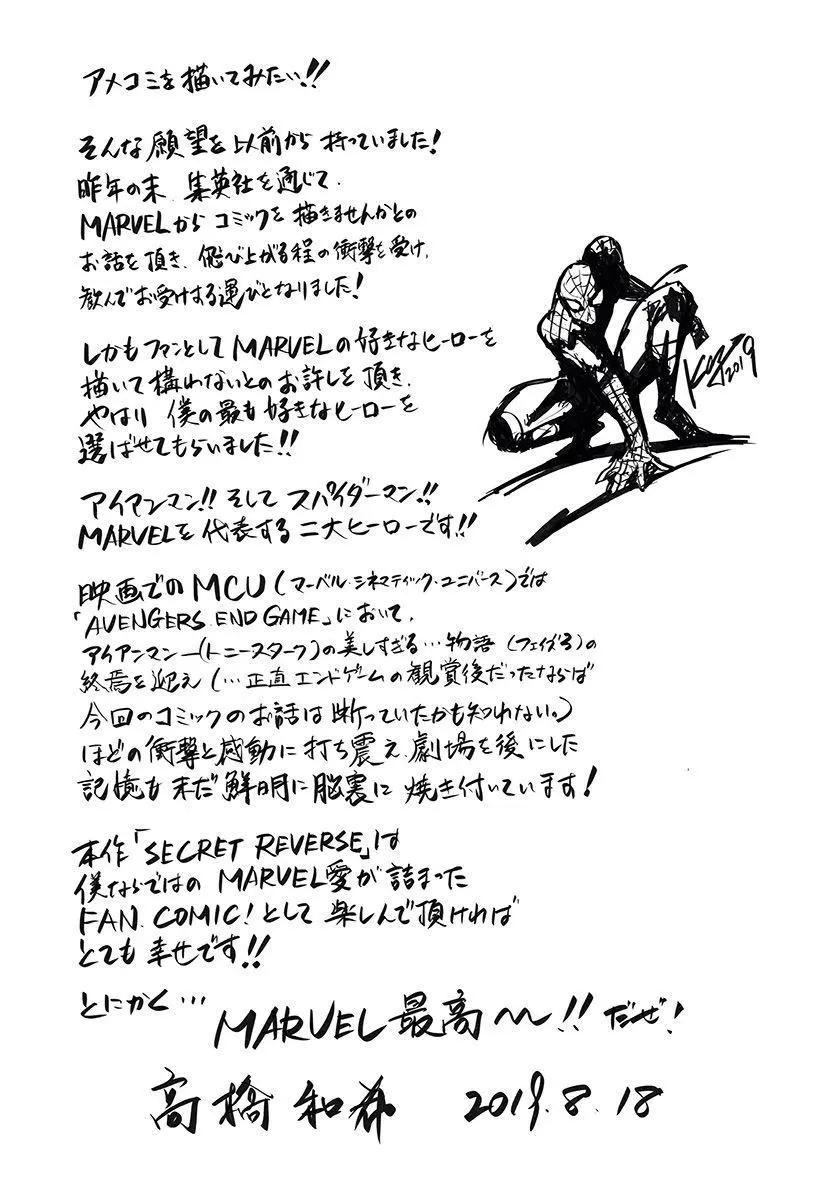 アメコミを描いてみたい!!
そんな願望を以前から持っていました!
昨年の末、集英社を通じて、
MARVELからコミックを描きませんかとの
お話を頂き、飛び上がる程の衝撃を受け、
歓んでお受けする運びとなりました!
しかもファンとしてMARVELの好きなヒーローを
描いて構わないとのお許しを頂き、
やはり 僕の最も好きなヒーローを
選ばせてもらいました!!
アイアンマン!! そして スパイダーマン!!
MARVELを代表する二大ヒーローです!!
映画でのMCU(マーベル・シネマティック・ユニバース)では
「AVENGERS END GAME」において、
アイアンマン―(トニースターク)の美しすぎる…物語(フェイズ3)の
終焉を迎え(…正直エンドゲームの観賞後だったならば
今回のコミックのお話は断っていたかも知れない。)
ほどの衝撃と感動に打ち震え、劇場を後にした
記憶も未だ鮮明に脳裏に焼き付いています!
本作「SECRET REVERSE」は
僕ならではのMARVEL愛が詰まった
FAN COMIC!として楽しんで頂ければ
とても幸せです!!
とにかく…
MARVEL最高〜〜!!だぜ!
高橋和希 2019.8.18
2019